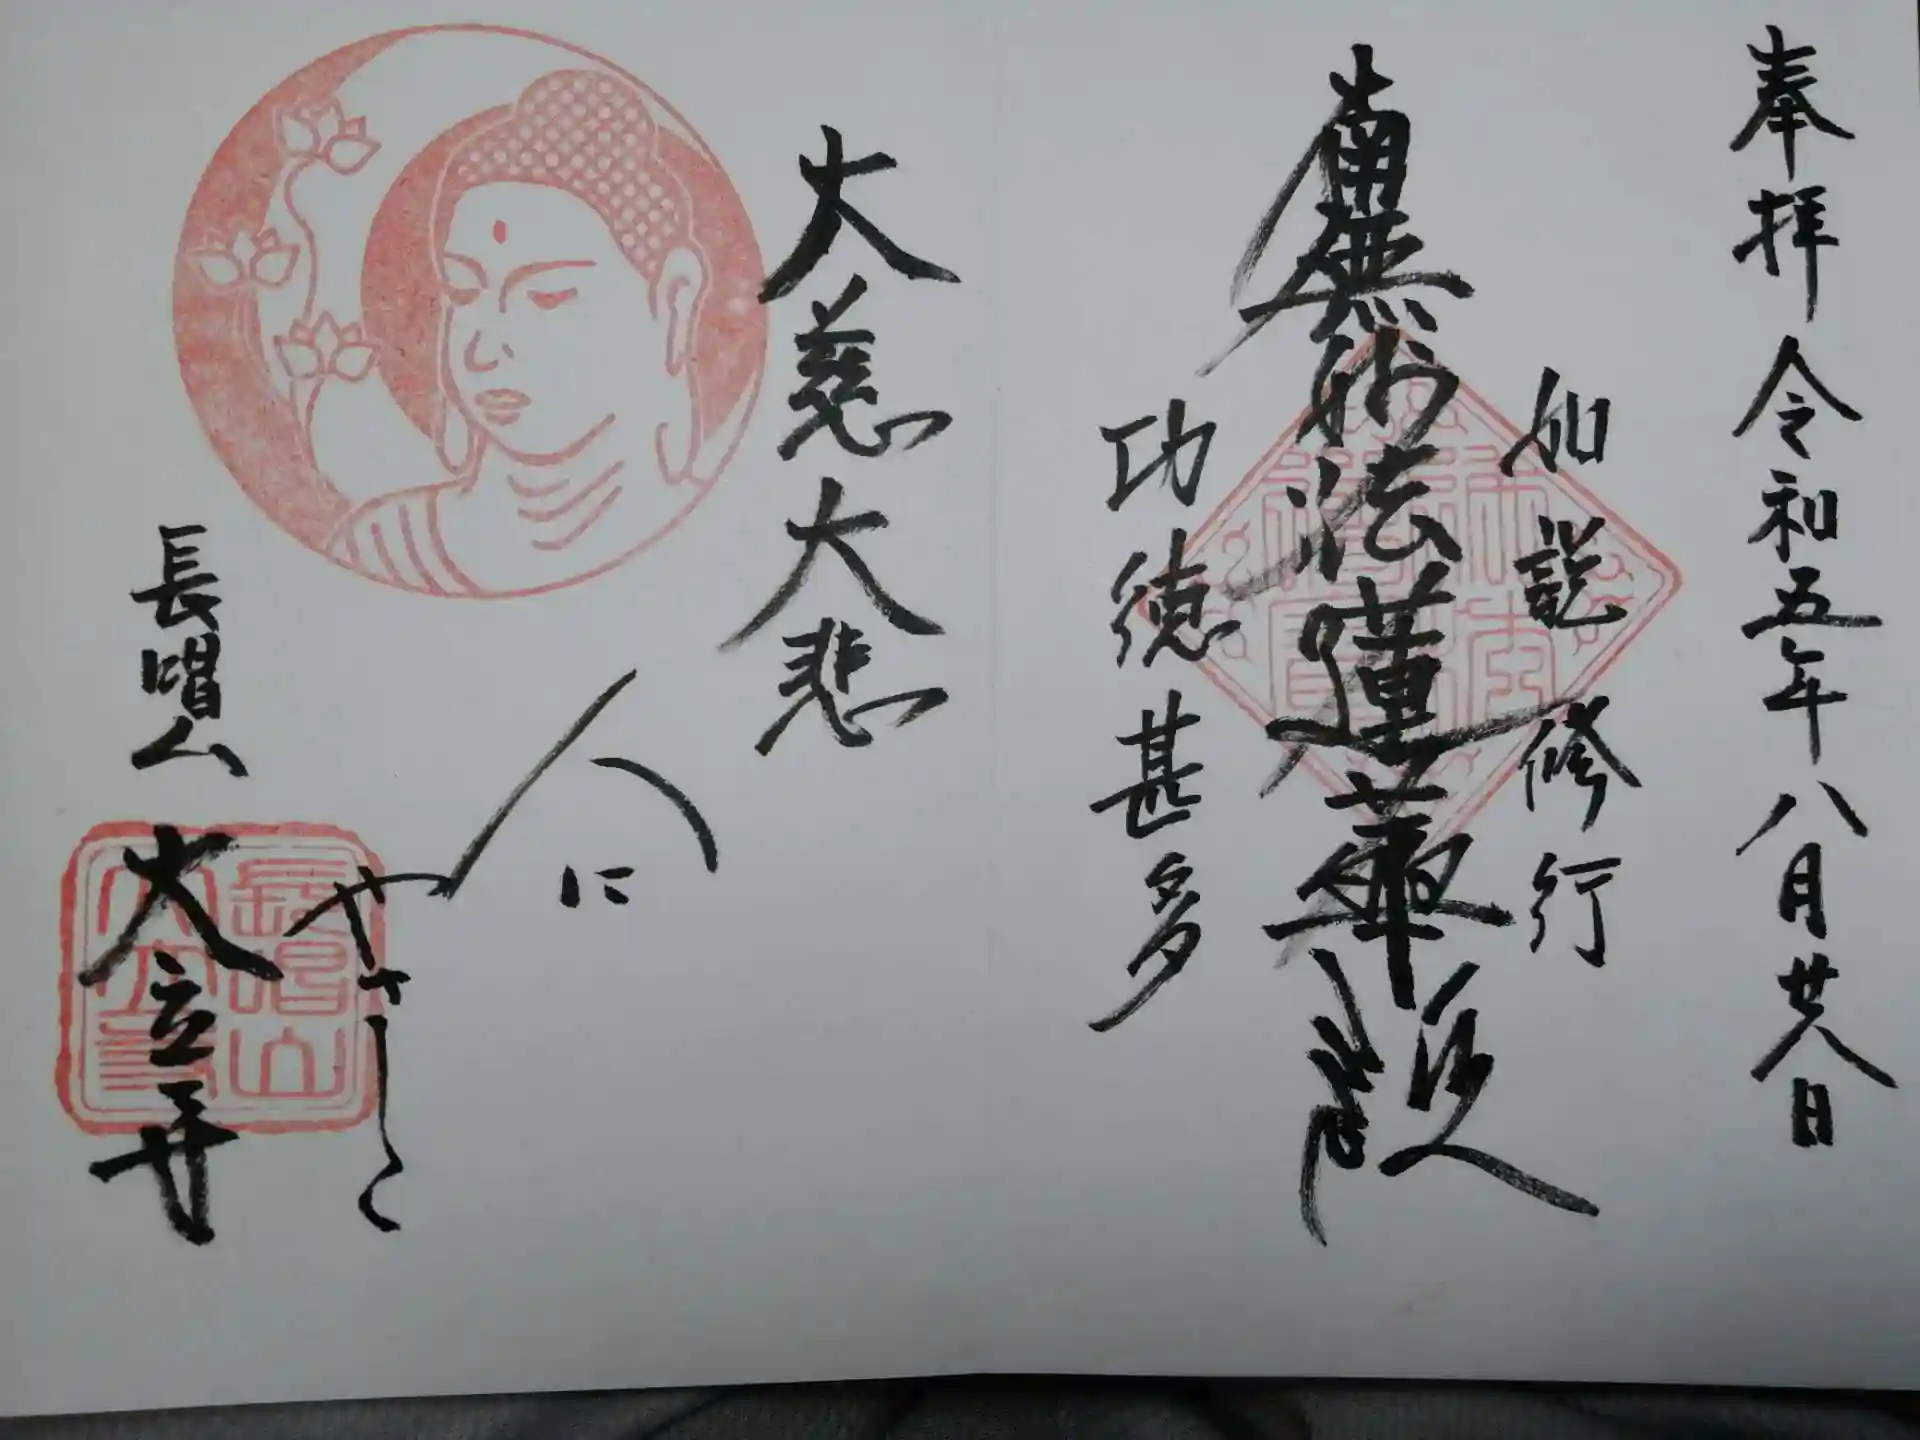 奉拝 令和五年八月廿八日
如説修行
南無妙法蓮華経
功徳甚多
大慈大悲
人に
やさしく
長唱山
大立寺